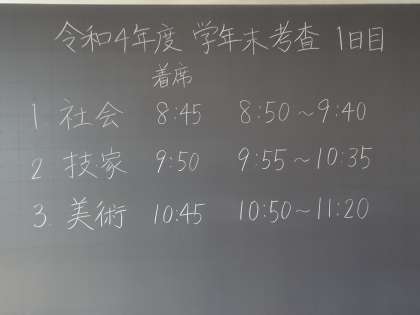 令和4年度 学年末考査 1日目
着席
1 社会 8:45 8:50~9:40
2 技家 9:50 9:55~10:35
3. 美術 10:45 10:50~11:20